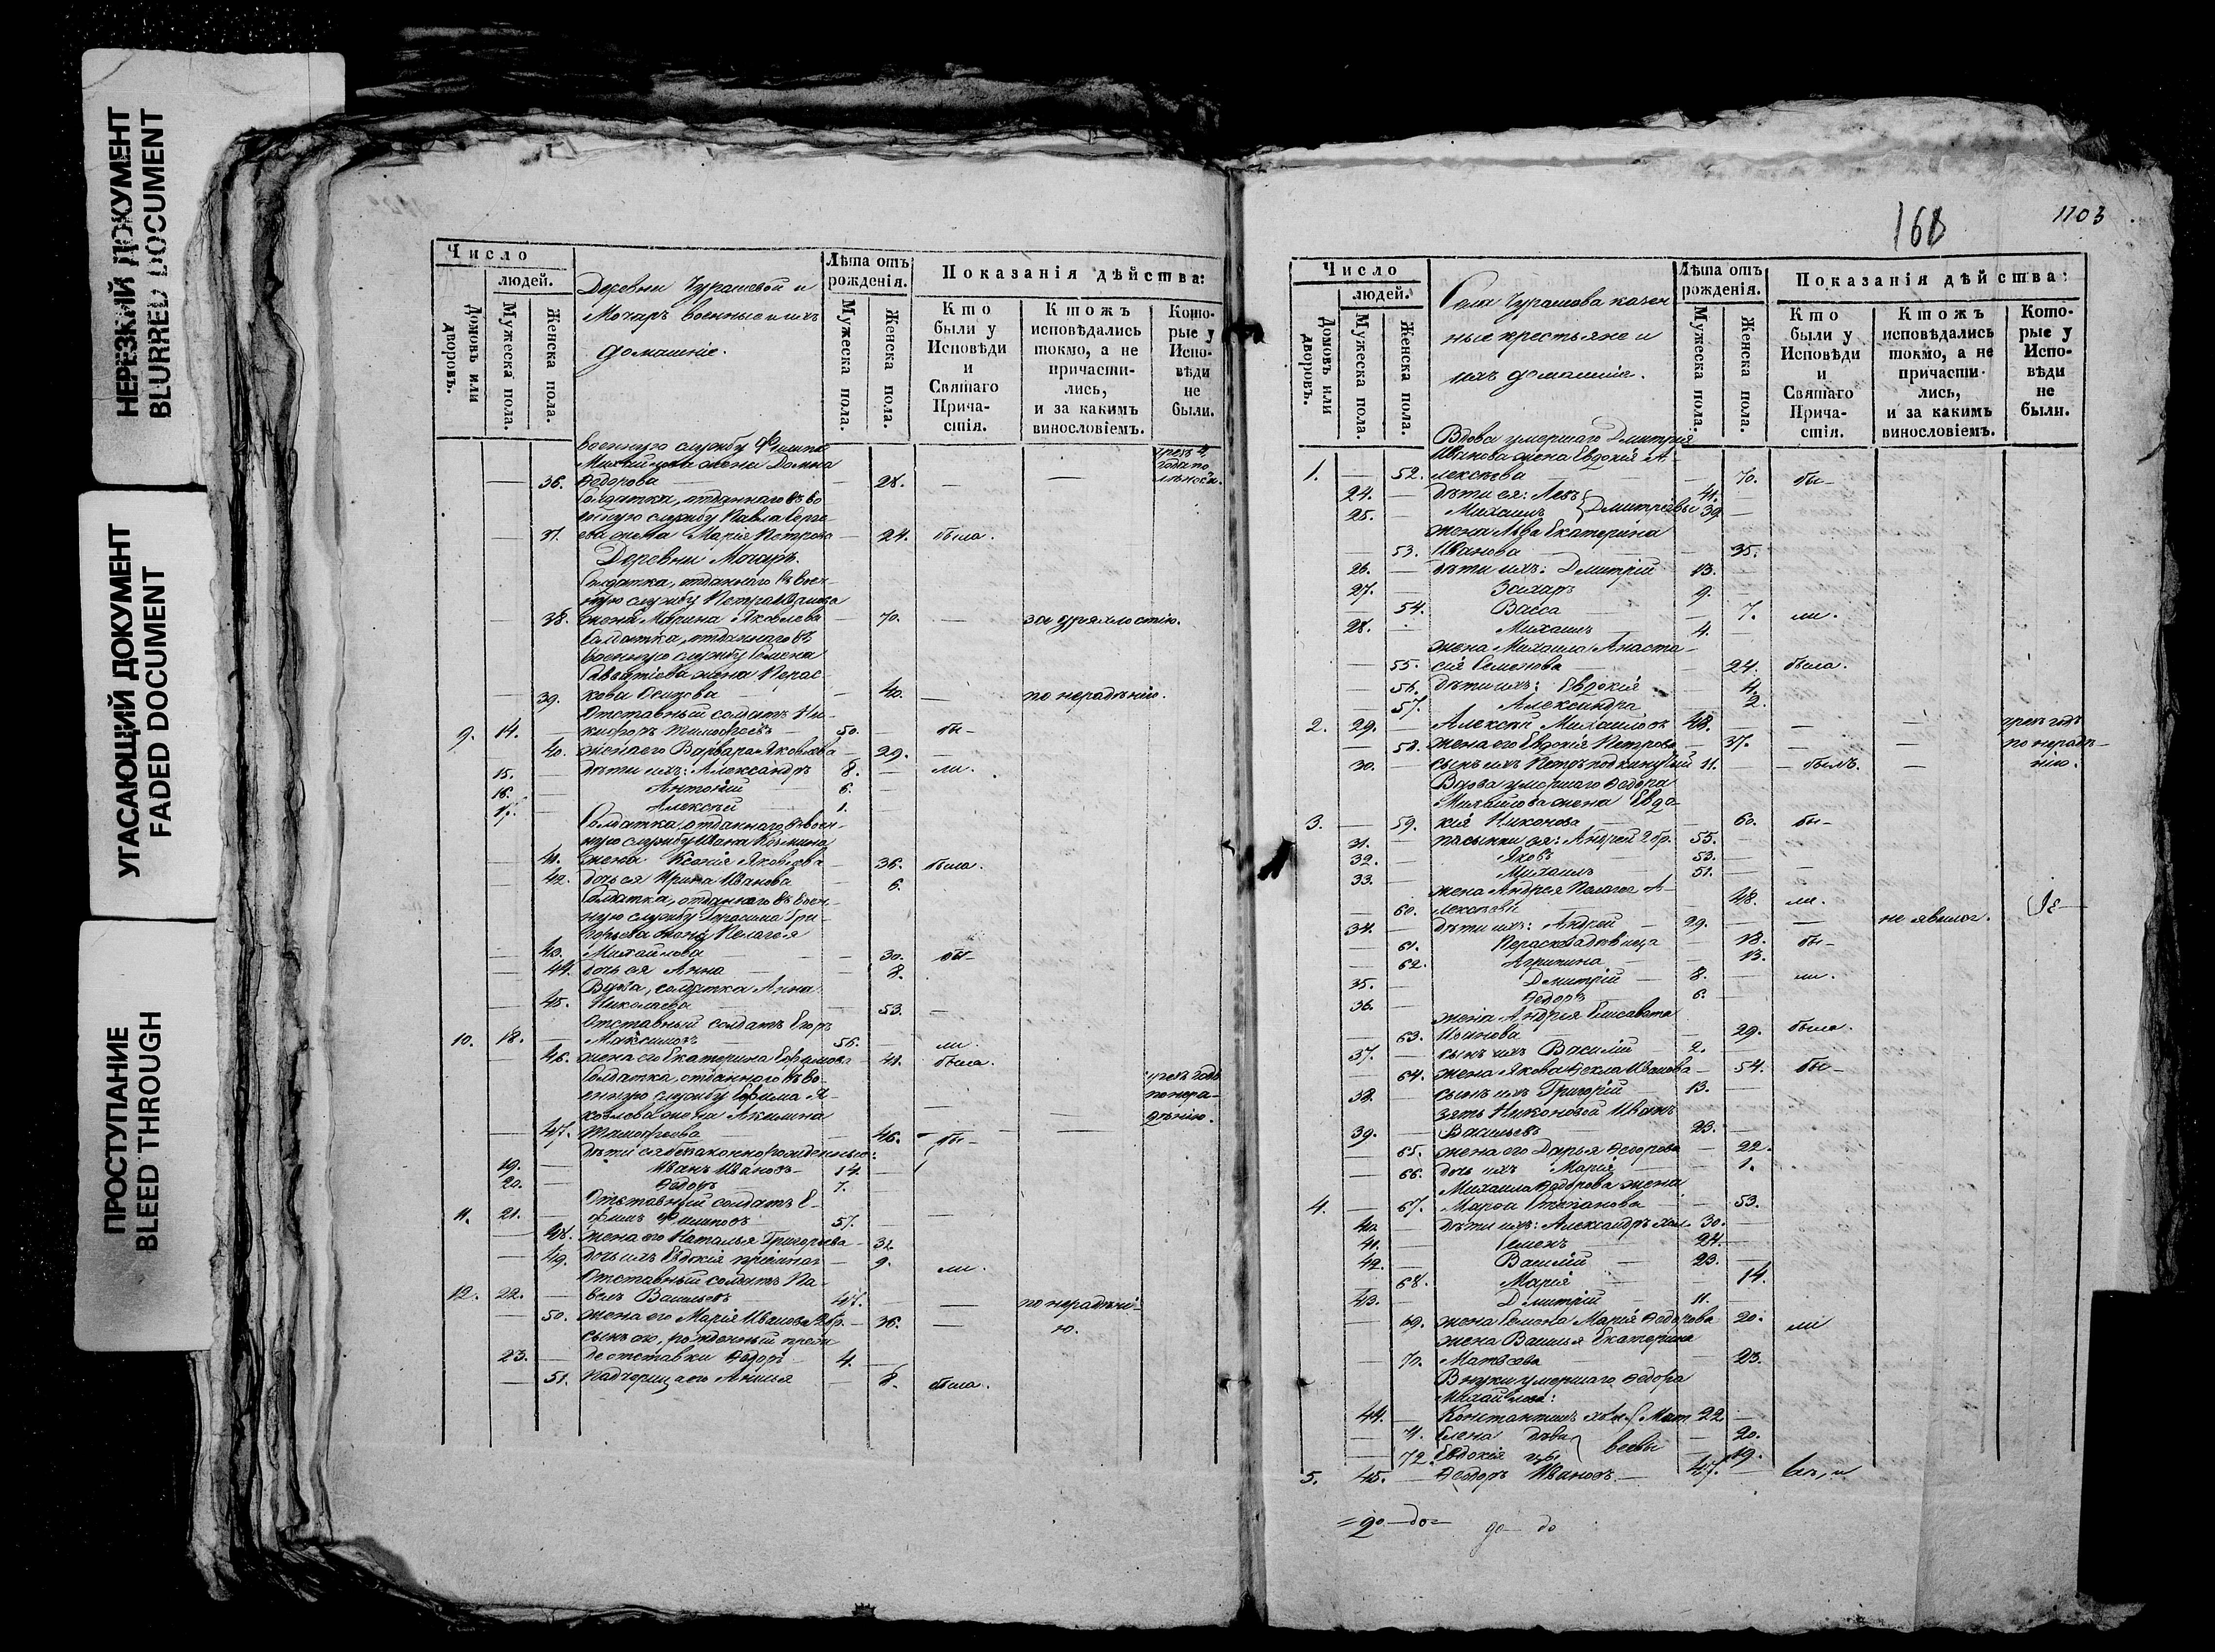 НЕРЕЗКИЙ ДОКУМЕНТ
BLURRED DOCUMENT
УГАСАЮЩИЙ ДОКУМЕНТ
FADED DOCUMENT
ПРОСТУПАНИЕ
BLEED THROUGH
Число
людей.
Домовъ или дворовъ.
Мужеска пола.
Женска пола.
Деревни Чурашевой и
Мочаръ военные и ихъ
домашніе.
Лѣта отъ рожденія.
Мужеска пола.
Женска пола.
Показанія дѣйства:
Кто были у Исповѣди и Святаго Причастія.
Ктожъ исповѣдались токмо, а не причастились, и за какимъ винословіемъ.
Которые у Исповѣди не были.
военную службу Филипа
Михайлова жена Домна
36. Ѳедорова — 28. — —
Солдатка, отданнаго въ во
енную службу Павла Серге
37. ева жена Марія Петрова — 24. была.
Деревни Мочаръ.
Солдатка, отданнаго въ воен-
ную службу Петра Иванова
38. жена Марина Яковлева — 70. — за дряхлостію.
Солдатка, отданнаго въ
военную службу Семена
Савватіева жена Парас-
39. кева Осипова — 40. — по нерадѣнію.
Отставный солдатъ Ни-
9. 14. — кифоръ Тимофеевъ 50. — бы-
40. жена его Варвара Яковлева — 29. —
15. — дѣти ихъ: Александръ 8. — ли.
16. — Антоній 6. —
17. — Алексѣй 1. —
Солдатка, отданнаго въ воен-
ную службу Ивана Козмина
41. жена Ксенія Яковлева — 36. была.
42. дочь ея Ирина Иванова — 6.
Солдатка, отданнаго въ воен-
ную службу Герасима Гри-
горьева жена Пелагея
43. Михайлова — 30. бы-
44. дочь ея Анна — 8.
Вдова, солдатка Анна
45. Николаева — 53. —
Отставный солдатъ Егоръ
10. 18. — Максимовъ 56. — ли.
46. жена его Екатерина Ефремова — 41. была.
Солдатка, отданнаго въ во-
енную службу Ефима Я-
ковлева жена Акилина
47. Тимофеева — 46. — бы-
дѣти ея незаконнорожденные:
19. — Иванъ Ивановъ 14. —
20. — Ѳедоръ 7. —
Отставный солдатъ Е-
11. 21. — фимъ Филиповъ 57. — —
48. жена его Наталья Григорьева — 32.
49. дочь ихъ Евдокія пріемная — 9. ли.
Отставный солдатъ Па-
12. 22. — велъ Васильевъ 47. — — по нерадѣні-
50. жена его Марія Иванова 2 бр. — 36. — ю.
сынъ его, рожденный преж
23. — де отставки Ѳедоръ 4. —
51. Падчерица его Анисья — 8. была.
168
1103
Число
людей.
Домовъ или дворовъ.
Мужеска пола.
Женска пола.
Села Чурашева казен
ные крестьяне и
ихъ домашніе.
Лѣта отъ рожденія.
Мужеска пола.
Женска пола.
Показанія дѣйства:
Кто были у Исповѣди и Святаго Причастія.
Ктожъ исповѣдались токмо, а не причастились, и за какимъ винословіемъ.
Которые у Исповѣди не были.
Вдова умершаго Дмитрія
Иванова жена Евдокія А-
1. — 52. лексѣева — 70. бы-
24. — дѣти ея: Левъ 41. —
25. — Михаилъ Дмитріевы 39. —
жена Льва Екатерина
53. Иванова — 35.
26. — дѣти ихъ: Дмитрій 13. —
27. — Захаръ 9. —
54. Васса — 7. ли.
28. — Михаилъ 4. —
жена Михаила Анаста-
55. сія Семенова — 24. была.
56. дѣти ихъ: Евдокія — 4.
57. Александра — 2.
2. 29. — Алексѣй Михайловъ 48. — — —
58. жена его Евдокія Петрова — 37. — — по нерадѣ-
30. — сынъ ихъ Петръ подкинутый 11. — былъ. — нію.
Вдова умершаго Ѳедора
Михайлова жена Евдо-
3. — 59. кія Никонова — 60. бы-
31. — пасынки ея: Андрей 2 бр. 55. —
32. — Яковъ 53. —
33. — Михаилъ 51. — —
жена Андрея Пелагея А-
60. лексѣева — 48. ли.
34. — дѣти ихъ: Андрей 29. — — не явился.
61. Параскева дѣвица — 18. бы-
62. Агрипина — 13.
35. — Дмитрій 8. — ли.
36. — Ѳедоръ 6. —
жена Андрея Елисавета
63. Иванова — 29. была.
37. — сынъ ихъ Василій 2. —
64. жена Якова Ѳекла Иванова — 54. бы-
38. — сынъ ихъ Григорій 13. —
зять Никоновой Иванъ
39. — Васильевъ 23. —
65. жена его Дарья Ѳедорова — 22.
66. дочь ихъ Марія — 1.
Михаила Ѳедорова жена
4. — 67. Марѳа Степанова — 53.
40. — дѣти ихъ: Александръ хол. 30. —
41. — Семенъ 24. —
42. — Василій 23. —
68. Марія — 14.
43. — Дмитрій 11. —
69. жена Семена Марія Ѳедорова 20. ли
жена Василья Екатерина
70. Матвѣева — 23.
Внуки умершаго Ѳедора
Михайлова:
44. — Константинъ хол. Мат 22. —
71. Елена дѣви — 20.
72. Евдокія цы веевы — 19.
5. 45. — Ѳедоръ Ивановъ 47. —